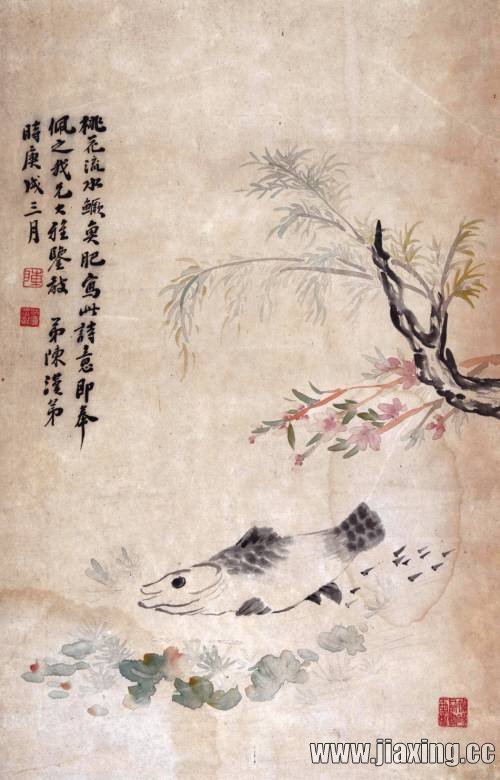 桃花流水鱖魚肥寫此詩意即奉
佩之我兄大雅鑒教 弟陳漢第
時庚戌三月
www.jiaxing.cc